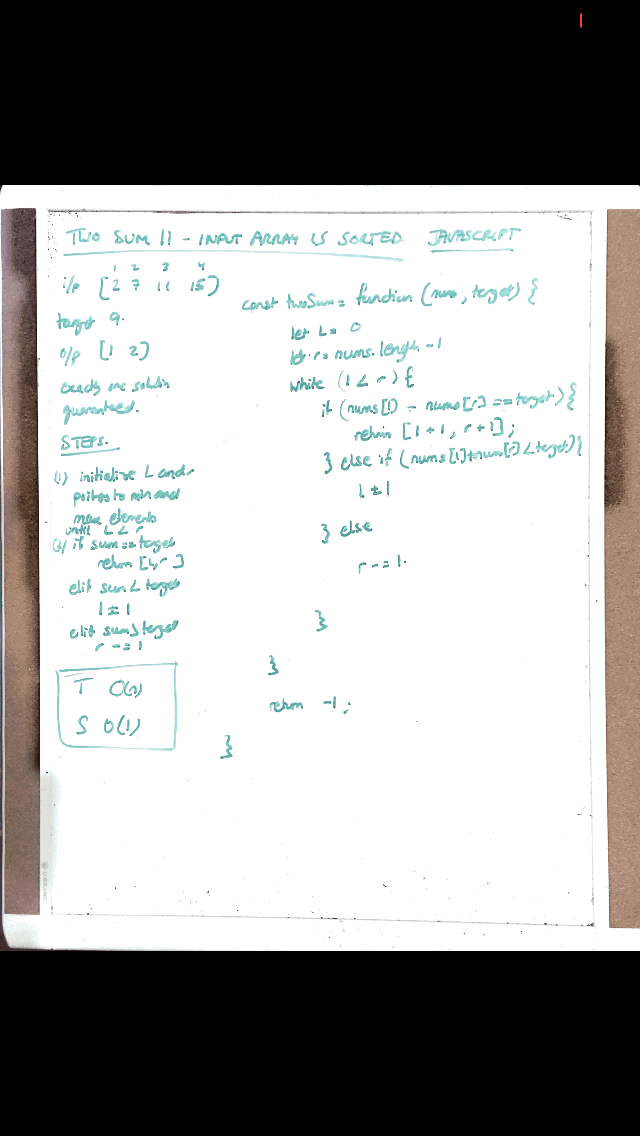 TWO SUM II - INPUT ARRAY IS SORTED JAVASCRIPT
1 2 3 4
i/p [2 7 11 15]
target 9.
o/p [1 2]
exactly one solution
guaranteed.
STEPS.
(1) initialize L and r
pointers to min and
max elements
until L < r
(2) if sum == target
return [l, r]
elif sum < target
l ± 1
elif sum > target
r -= 1
T O(n)
S O(1)
const twoSum = function (nums, target) {
let L = 0
let r = nums.length -1
while (l < r) {
if (nums[l] - nums[r] == target) {
return [l + 1, r + 1];
} else if (nums[l] + num[r] < target) {
l ± 1
} else
r -= 1.
}
}
return -1;
}